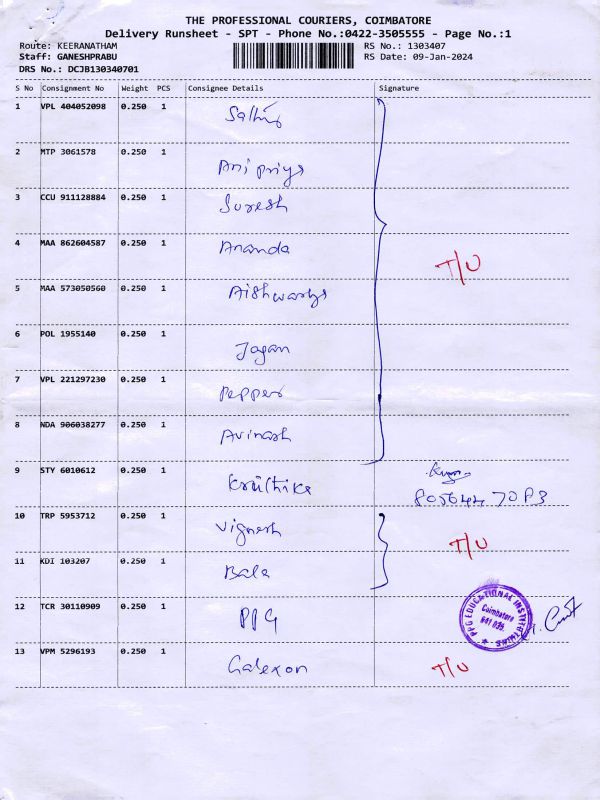 THE PROFESSIONAL COURIERS, COIMBATORE
Delivery Runsheet - SPT - Phone No.:0422-3505555 - Page No.:1
Route: KEERANATHAM RS No.: 1303407
Staff: GANESHPRABU RS Date: 09-Jan-2024
DRS No.: DCJB130340701
S No Consignment No Weight PCS Consignee Details Signature
1 VPL 404052098 0.250 1
2 MTP 3061578 0.250 1 Ani priya
3 CCU 911128884 0.250 1 Suresh
4 MAA 862604587 0.250 1 Ananda
T/U
5 MAA 573050560 0.250 1 Aishwarya
6 POL 1955140 0.250 1 Jagan
7 VPL 221297230 0.250 1 Pepper
8 NDA 906038277 0.250 1 Avinash
9 STY 6010612 0.250 1 Kruthika
10 TRP 5953712 0.250 1 Vignesh
T/U
11 KDI 103207 0.250 1 Bala
12 TCR 30110909 0.250 1 PPG
PPG EDUCATIONAL INSTITUTIONS
Coimbatore
641 035.
13 VPM 5296193 0.250 1 Galexon T/U